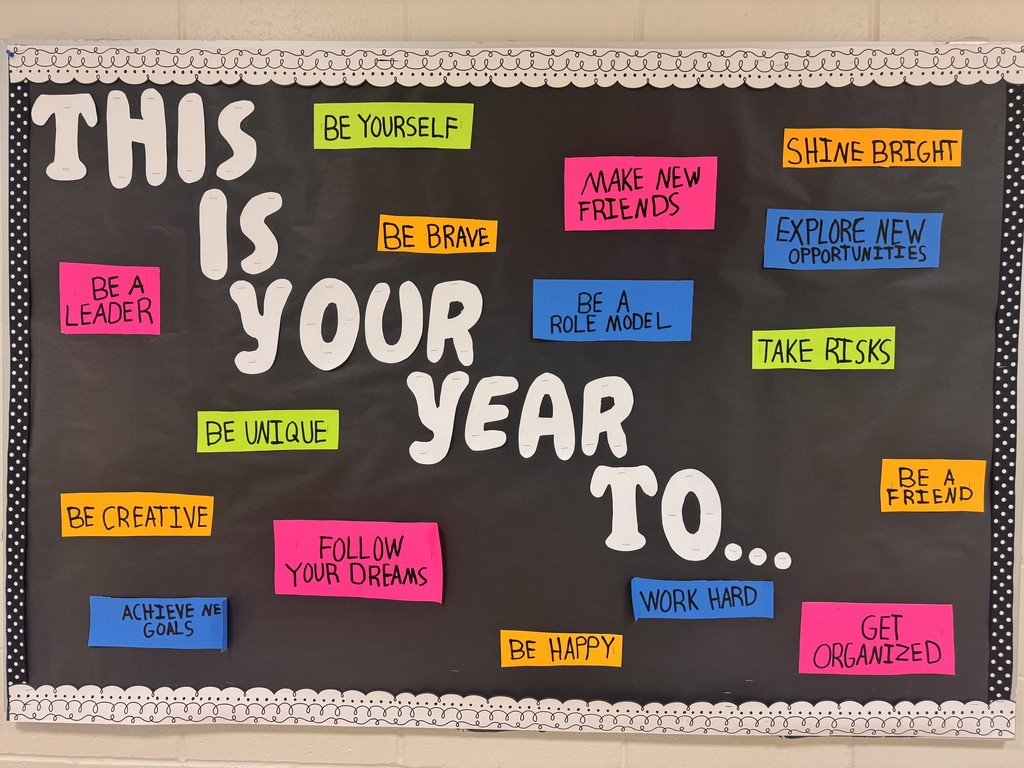 THIS
IS
YOUR
YEAR
TO...
BE YOURSELF
SHINE BRIGHT
MAKE NEW
FRIENDS
BE BRAVE
EXPLORE NEW
OPPORTUNITIES
BE A
LEADER
BE A
ROLE MODEL
TAKE RISKS
BE UNIQUE
BE A
FRIEND
BE CREATIVE
FOLLOW
YOUR DREAMS
WORK HARD
ACHIEVE NE
GOALS
GET
ORGANIZED
BE HAPPY